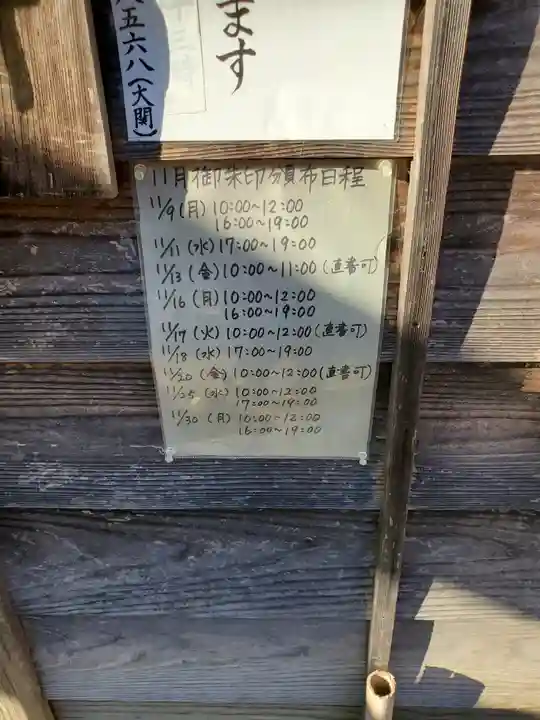 ます
八五六八(大関)
11月御朱印頒布日程
11/9(月)10:00~12:00
16:00~19:00
11/11(水)17:00~19:00
11/13(金)10:00~11:00(直書可)
11/16(月)10:00~12:00
16:00~19:00
11/17(火)10:00~12:00(直書可)
11/18(水)17:00~19:00
11/20(金)10:00~12:00(直書可)
11/25(水)10:00~12:00
17:00~19:00
11/30(月)10:00~12:00
16:00~19:00